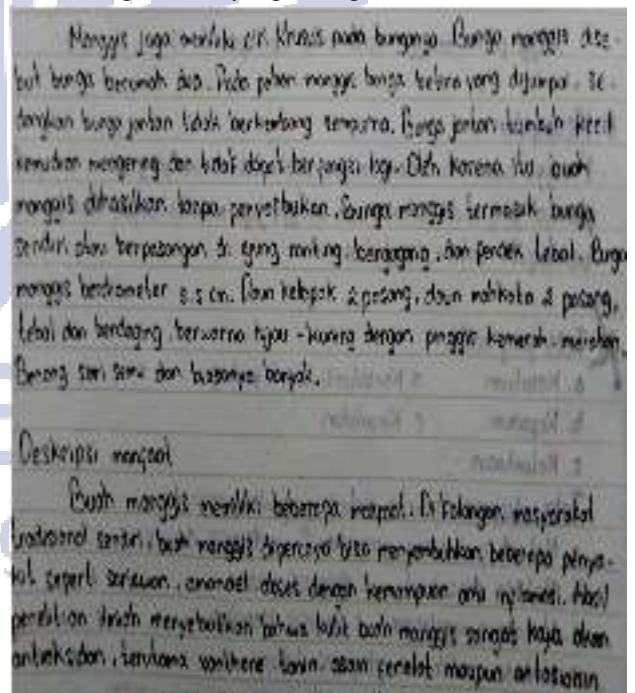 Manggis juga memiliki ciri khusus pada bunganya. Bunga manggis dise-
but bunga berumah dua. Pada pohon manggis bunga betina yang dijumpai. Se-
dangkan bunga jantan tidak berkembang sempurna. Bunga jantan tumbuh kecil
kemudian mengering dan tidak dapat berfungsi lagi. Oleh karena itu, buah
manggis dihasilkan tanpa penyerbukan. Bunga manggis termasuk bunga
sendiri atau berpasangan di ujung ranting, bergagang, dan pendek tebal. Bunga
manggis berdiameter 5.5 cm. Daun kelopak 2 pasang, daun mahkota 2 pasang,
tebal dan berdaging, berwarna hijau - kuning dengan pinggir kemerah-merahan.
Benang sari semu dan biasanya banyak.
Deskripsi manfaat
Buah manggis memiliki beberapa manfaat. Di kalangan masyarakat
tradisional sendiri, buah manggis dipercaya bisa menyembuhkan beberapa penya-
kit seperti sariawan, abses dengan kemampuan anti inflamasi. Hasil
penelitian ilmiah menyebutkan bahwa kulit buah manggis sangat kaya akan
antioksidan, terutama tanin, asam maupun antosianin